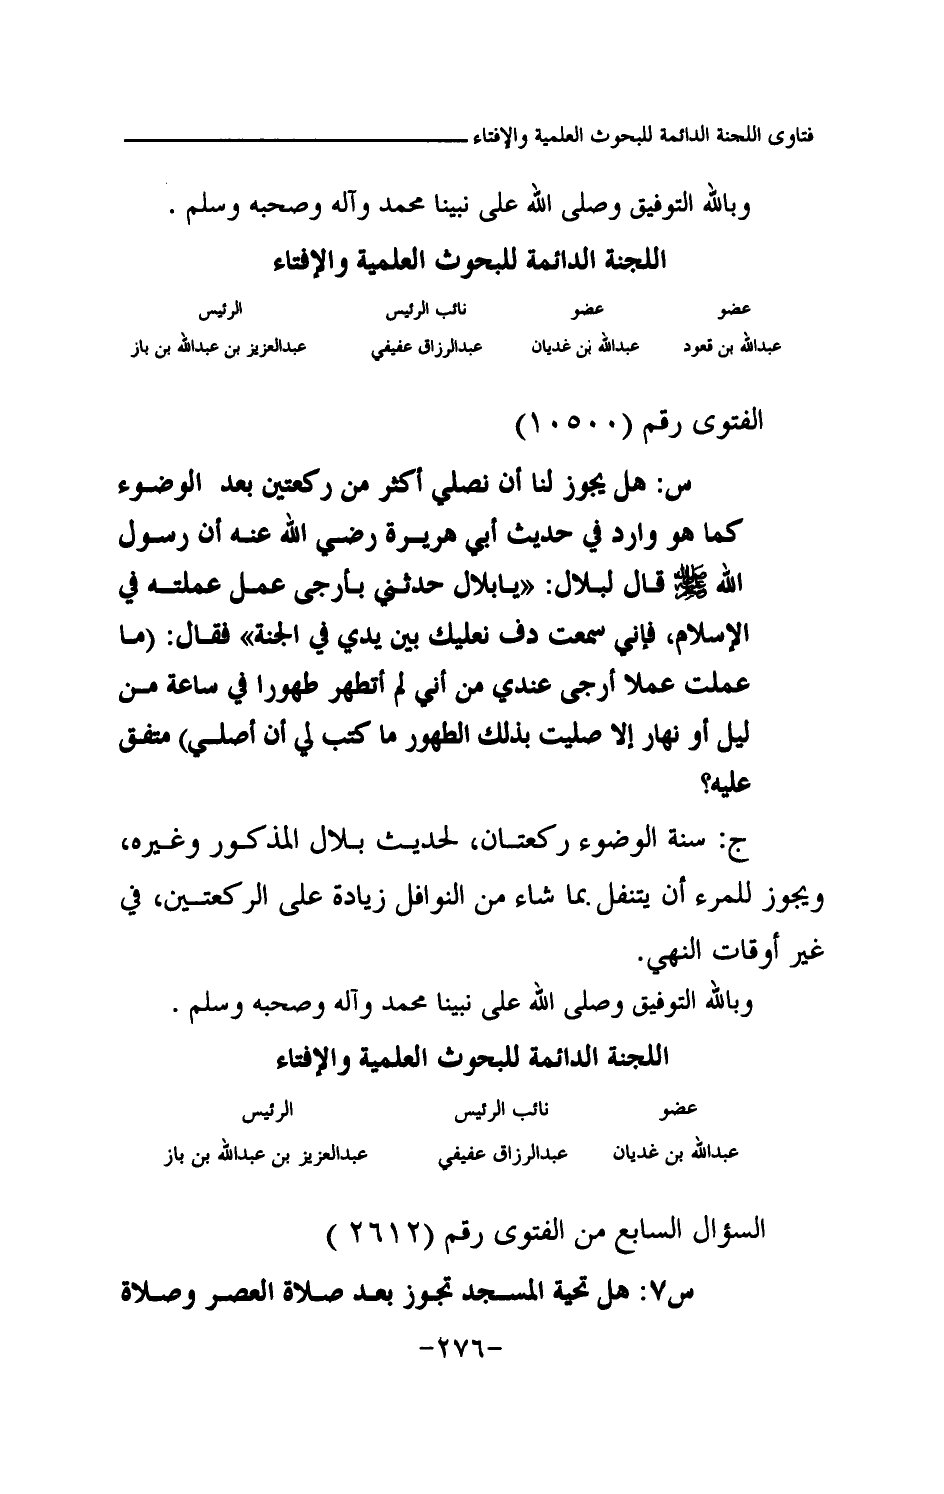 فتاوى اللجنة الدائمة للبحوث العلمية والإفتاء
وبالله التوفيق وصلى الله على نبينا محمد وآله وصحبه وسلم .
اللجنة الدائمة للبحوث العلمية والإفتاء
عضو عضو نائب الرئيس الرئيس
عبدالله بن قعود عبدالله بن غديان عبدالرزاق عفيفي عبدالعزيز بن عبدالله بن باز
الفتوى رقم (١٠٥٠٠)
س: هل يجوز لنا أن نصلي أكثر من ركعتين بعد الوضوء
كما هو وارد في حديث أبي هريرة رضي الله عنه أن رسول
الله ﷺ قال لبلال: «يابلال حدثني بأرجى عمل عملته في
الإسلام، فإني سمعت دف نعليك بين يدي في الجنة» فقال: (ما
عملت عملا أرجى عندي من أني لم أتطهر طهورا في ساعة من
ليل أو نهار إلا صليت بذلك الطهور ما كتب لي أن أصلي) متفق
عليه؟
ج: سنة الوضوء ركعتان، لحديث بلال المذكور وغيره،
ويجوز للمرء أن يتنفل بما شاء من النوافل زيادة على الركعتين، في
غير أوقات النهي.
وبالله التوفيق وصلى الله على نبينا محمد وآله وصحبه وسلم .
اللجنة الدائمة للبحوث العلمية والإفتاء
عضو نائب الرئيس الرئيس
عبدالله بن غديان عبدالرزاق عفيفي عبدالعزيز بن عبدالله بن باز
السؤال السابع من الفتوى رقم (٢٦١٢ )
س٧: هل تحية المسجد تجوز بعد صلاة العصر وصلاة
-٢٧٦-